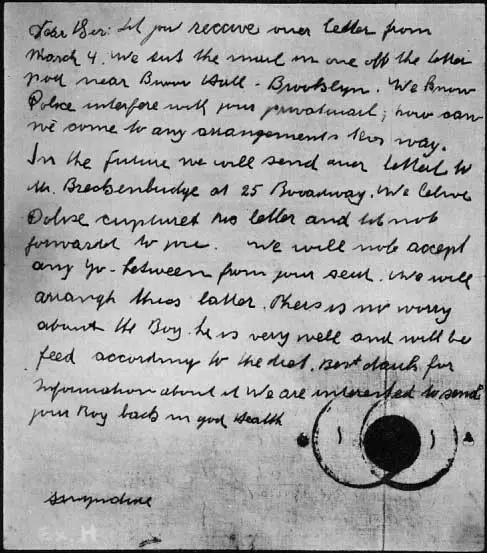 Dear Sir: Did you receive ouer letter from
March 4. We sent the mail in one off the letter
pox near Burro Hall - Brooklyn. We know
Police interfere with your privatmail; how can
we come to any arrangements this way.
In the future we will send ouer letters to
Mr. Breckenbridge at 25 Broadway. We believe
Police captured two letter and let not
forwardet to you. We will not accept
any go-between from your sent. We will
arrangh thiss latter. There is no worry
about the Boy. he is very well and will be
feed according to the diet. Best dank for
Information about it. We are interested to send
your Boy back in gud Health
singnature
Ex. H